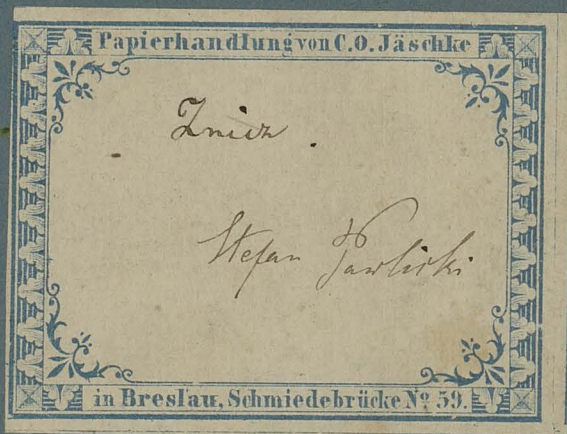 Papierhandlung von C. O. Jäschke
Znicz.
Stefan Pawlicki
in Breslau, Schmiedebrücke No 59.